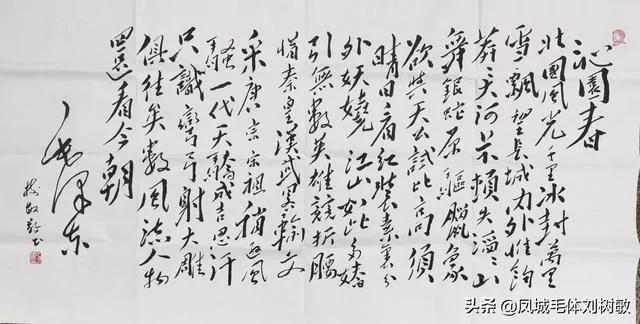 沁園春
北國風光千里冰封萬里
雪飄望長城內外惟餘
莽莽大河上下頓失滔滔山
舞銀蛇原驅臘象
欲與天公試比高須
晴日看紅裝素裹分
外妖嬈江山如此多嬌
引無數英雄競折腰
惜秦皇漢武略輸文
采唐宗宋祖稍遜風
騷一代天驕成吉思汗
只識彎弓射大雕
俱往矣數風流人物
還看今朝
毛泽东
树敏
头条 @凤城毛体刘树敏